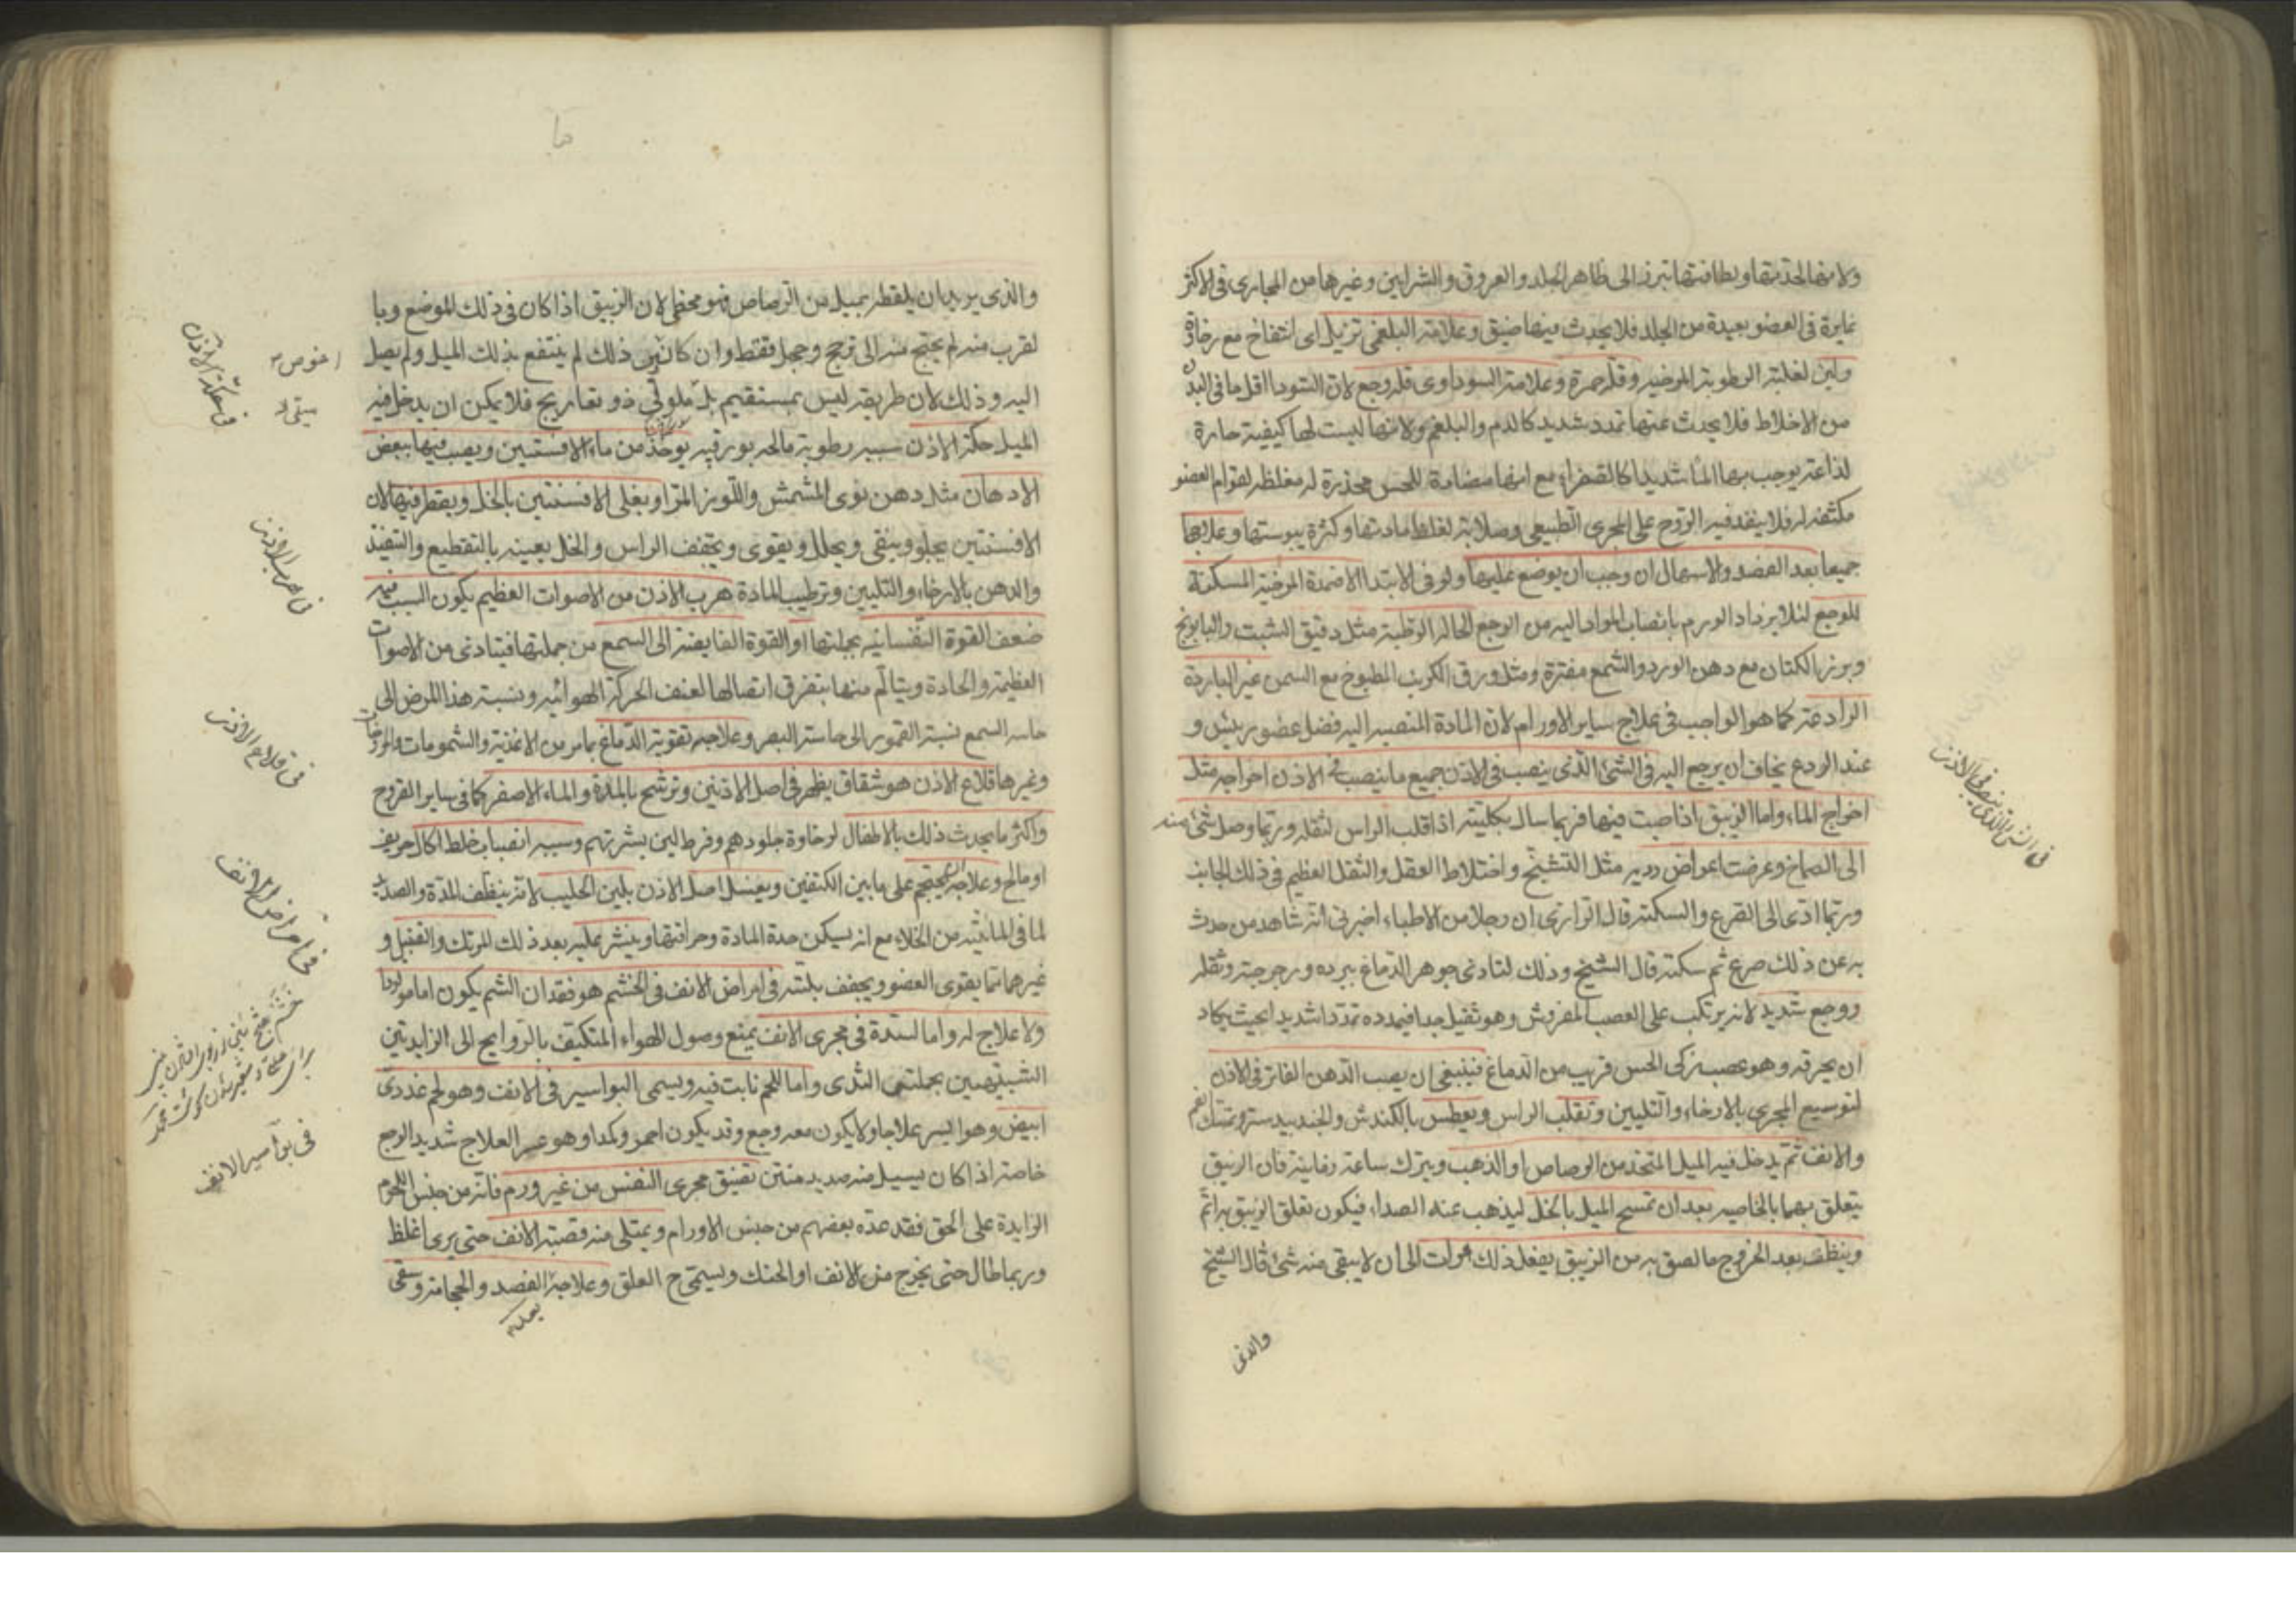 ولانها لحدتها ولطافتها تبرز الى ظاهر الجلد والعروق والشرايين وغيرها من المجارى فى الاكثر
غايرة فى العضو بعيدة من الجلد فلا يحدث فيها ضيق وعلامة البلغمى تربل اى انتفاخ مع رخاوة
ولين لغلبة الرطوبة المرخية وقلة حمرة وعلامة السوداوى قلة وجع لان السودا اقل ما فى البدن
من الاخلاط فلا يحدث عنها تمدد شديد كالدم والبلغم ولانها ليست لها كيفية حارة
لذاعة يوجب بها الما شديدا كالصفراء مع انها مضادة للحس مخدرة له مغلظة لقوام العضو
مكثفة له فلا ينفد فيه الروح على المجرى الطبيعى وصلابة لغلظ مادتها وكثرة يبوستها وعلاجها
جميعا بعد الفصد والاسهال ان وجب ان يوضع عليها ولو فى الابتدا الاضمدة المرخية المسكنة
للوجع لئلا يزداد الورم بانصاب المواد اليه من الوجع الحالة الرطبة مثل دقيق الشبت والبابونج
وبزر الكتان مع دهن الورد والشمع مفترة ومثل ورق الكرنب المطبوخ مع السمن غير الباردة
الرادعة كما هو الواجب فى علاج ساير الاورام لان المادة المنصبة اليه فضل عضو رييس و
عند الردع يخاف ان يرجع اليه فى الشئ الذى ينصب فى الاذن جميع ما ينصب فى الاذن اخراجه مثل
اخراج الماء واما الزيبق اذا صبت فيها فربما سال بكليته اذا قلب الراس لثقله وربما وصل شئ منه
الى الصماخ وعرضت اعراض ردية مثل التشنج واختلاط العقل والثقل العظيم فى ذلك الجانب
وربما ادى الى الصرع والسكتة قال الرازى ان رجلا من الاطباء اخبرنى انه شاهد من حدث
به عن ذلك صرع ثم سكتة قال الشيخ وذلك لتاذى جوهر الدماغ ببرده ورجرجته وثقله
ووجع شديد لانه يرتكب على العصب المفروش وهو ثقيل جدا فيمدده تمددا شديدا بحيث يكاد
ان يخرقه وهو عصب زكى الحس قريب من الدماغ فينبغى ان يصب الدهن الفاتر فى الاذن
لتوسيع المجرى بالارخاء والتليين وتقلب الراس ويعطس بالكندش والجندبيدستر ويمسك الفم
والانف ثم يدخل فيه الميل المتخذ من الرصاص او الذهب ويترك ساعة زمانية فان الزيبق
يتعلق بهما بالخاصية بعد ان تمسح الميل بالخل ليذهب عنه الصداء فيكون تعلق الزيبق به اتم
وينظف بعد الخروج ما لصق به من الزيبق يفعل ذلك مرات الى ان لا يبقى منه شئ قال الشيخ
والذى
فى الشئ الذى ينصب فى الاذن
والذى يريد ان يلقطه بميل من الرصاص فهو مخطى لان الزيبق اذا كان فى ذلك الموضع وبا
لقرب منه لم يحتج منه الى ترجج وحجل فقط وان كان ذلك لم ينتفع بذلك الميل ولم يصل
اليه وذلك لان طريقه ليس بمستقيم بل ملولى ذو تعاريج فلا يمكن ان يدخل فيه
الميل حكة الاذن سببه رطوبة مالحة بورقية يوخذ من ماء الافسنتين ويصب فيها بعض
الادهان مثل دهن نوى المشمش واللوز المر او يغلى الافسنتين بالخل ويقطر فيها لان
الافسنتين يجلو وينقى ويحلل ويقوى ويجفف الراس والخل يعينه بالتقطيع والتنفيذ
والدهن بالارخاء والتليين وترطيب المادة هرب الاذن من الاصوات العظيم يكون السبب فيه
ضعف القوة النفسانية بجملتها او القوة الفايضة الى السمع من جملتها فيتاذى من الاصوات
العظيمة والحادة ويتالم منها بتفرق اتصالها لعنف الحركة الهوائية ونسبة هذا المرض الى
حاسة السمع نسبة القمور الى حاسة البصر وعلاجه تقوية الدماغ بما مر من الاغذية والشمومات والمروخات
وغيرها قلاع الاذن هو شقاق يظهر فى اصل الاذنين وترشح بالمدة والماء الاصفر كما فى ساير القروح
واكثر ما يحدث ذلك بالاطفال لرخاوة جلودهم وفرط لين بشرتهم وسببه انصباب خلط اكال حريف
او مالح وعلاجه ان يحتجم على ما بين الكتفين ويغسل اصل الاذن بلبن الحليب لانه ينظف المدة والصديد
لما فى المائية من الجلاء مع انه يسكن حدة المادة وحرافتها وينثر عليه بعد ذلك المرتك والقنبيل و
غيرهما مما يقوى العضو ويجفف بلته فى امراض الانف فى الخشم هو فقدان الشم يكون اما مولودا
ولا علاج له واما لسدة فى مجرى الانف يمنع وصول الهواء المتكيف بالروايح الى الزايدتين
الشبيهتين بحملتى الثدى واما للحم نابت فيه ويسمى البواسير فى الانف وهو لحم غددى
ابيض وهو ايسر علاجا ولا يكون معه وجع وقد يكون احمر وكمدا وهو عسر العلاج شديد الوجع
خاصة اذا كان يسيل منه صديد منتن تضيق مجرى النفس من غير ورم فانه من جنس اللحوم
الزايدة على الحق فقد عده بعضهم من جنس الاورام ويمتلى منه قصبة الانف حتى يرى اغلظ
وربما طال حتى يخرج من الانف او الحنك ويسمى ح العلق وعلاجه الفصد والحجامة وسقى
فى حكة الاذن
فى هرب الاذن
فى قلاع الاذن
فى امراض الانف
فى بواسير الانف